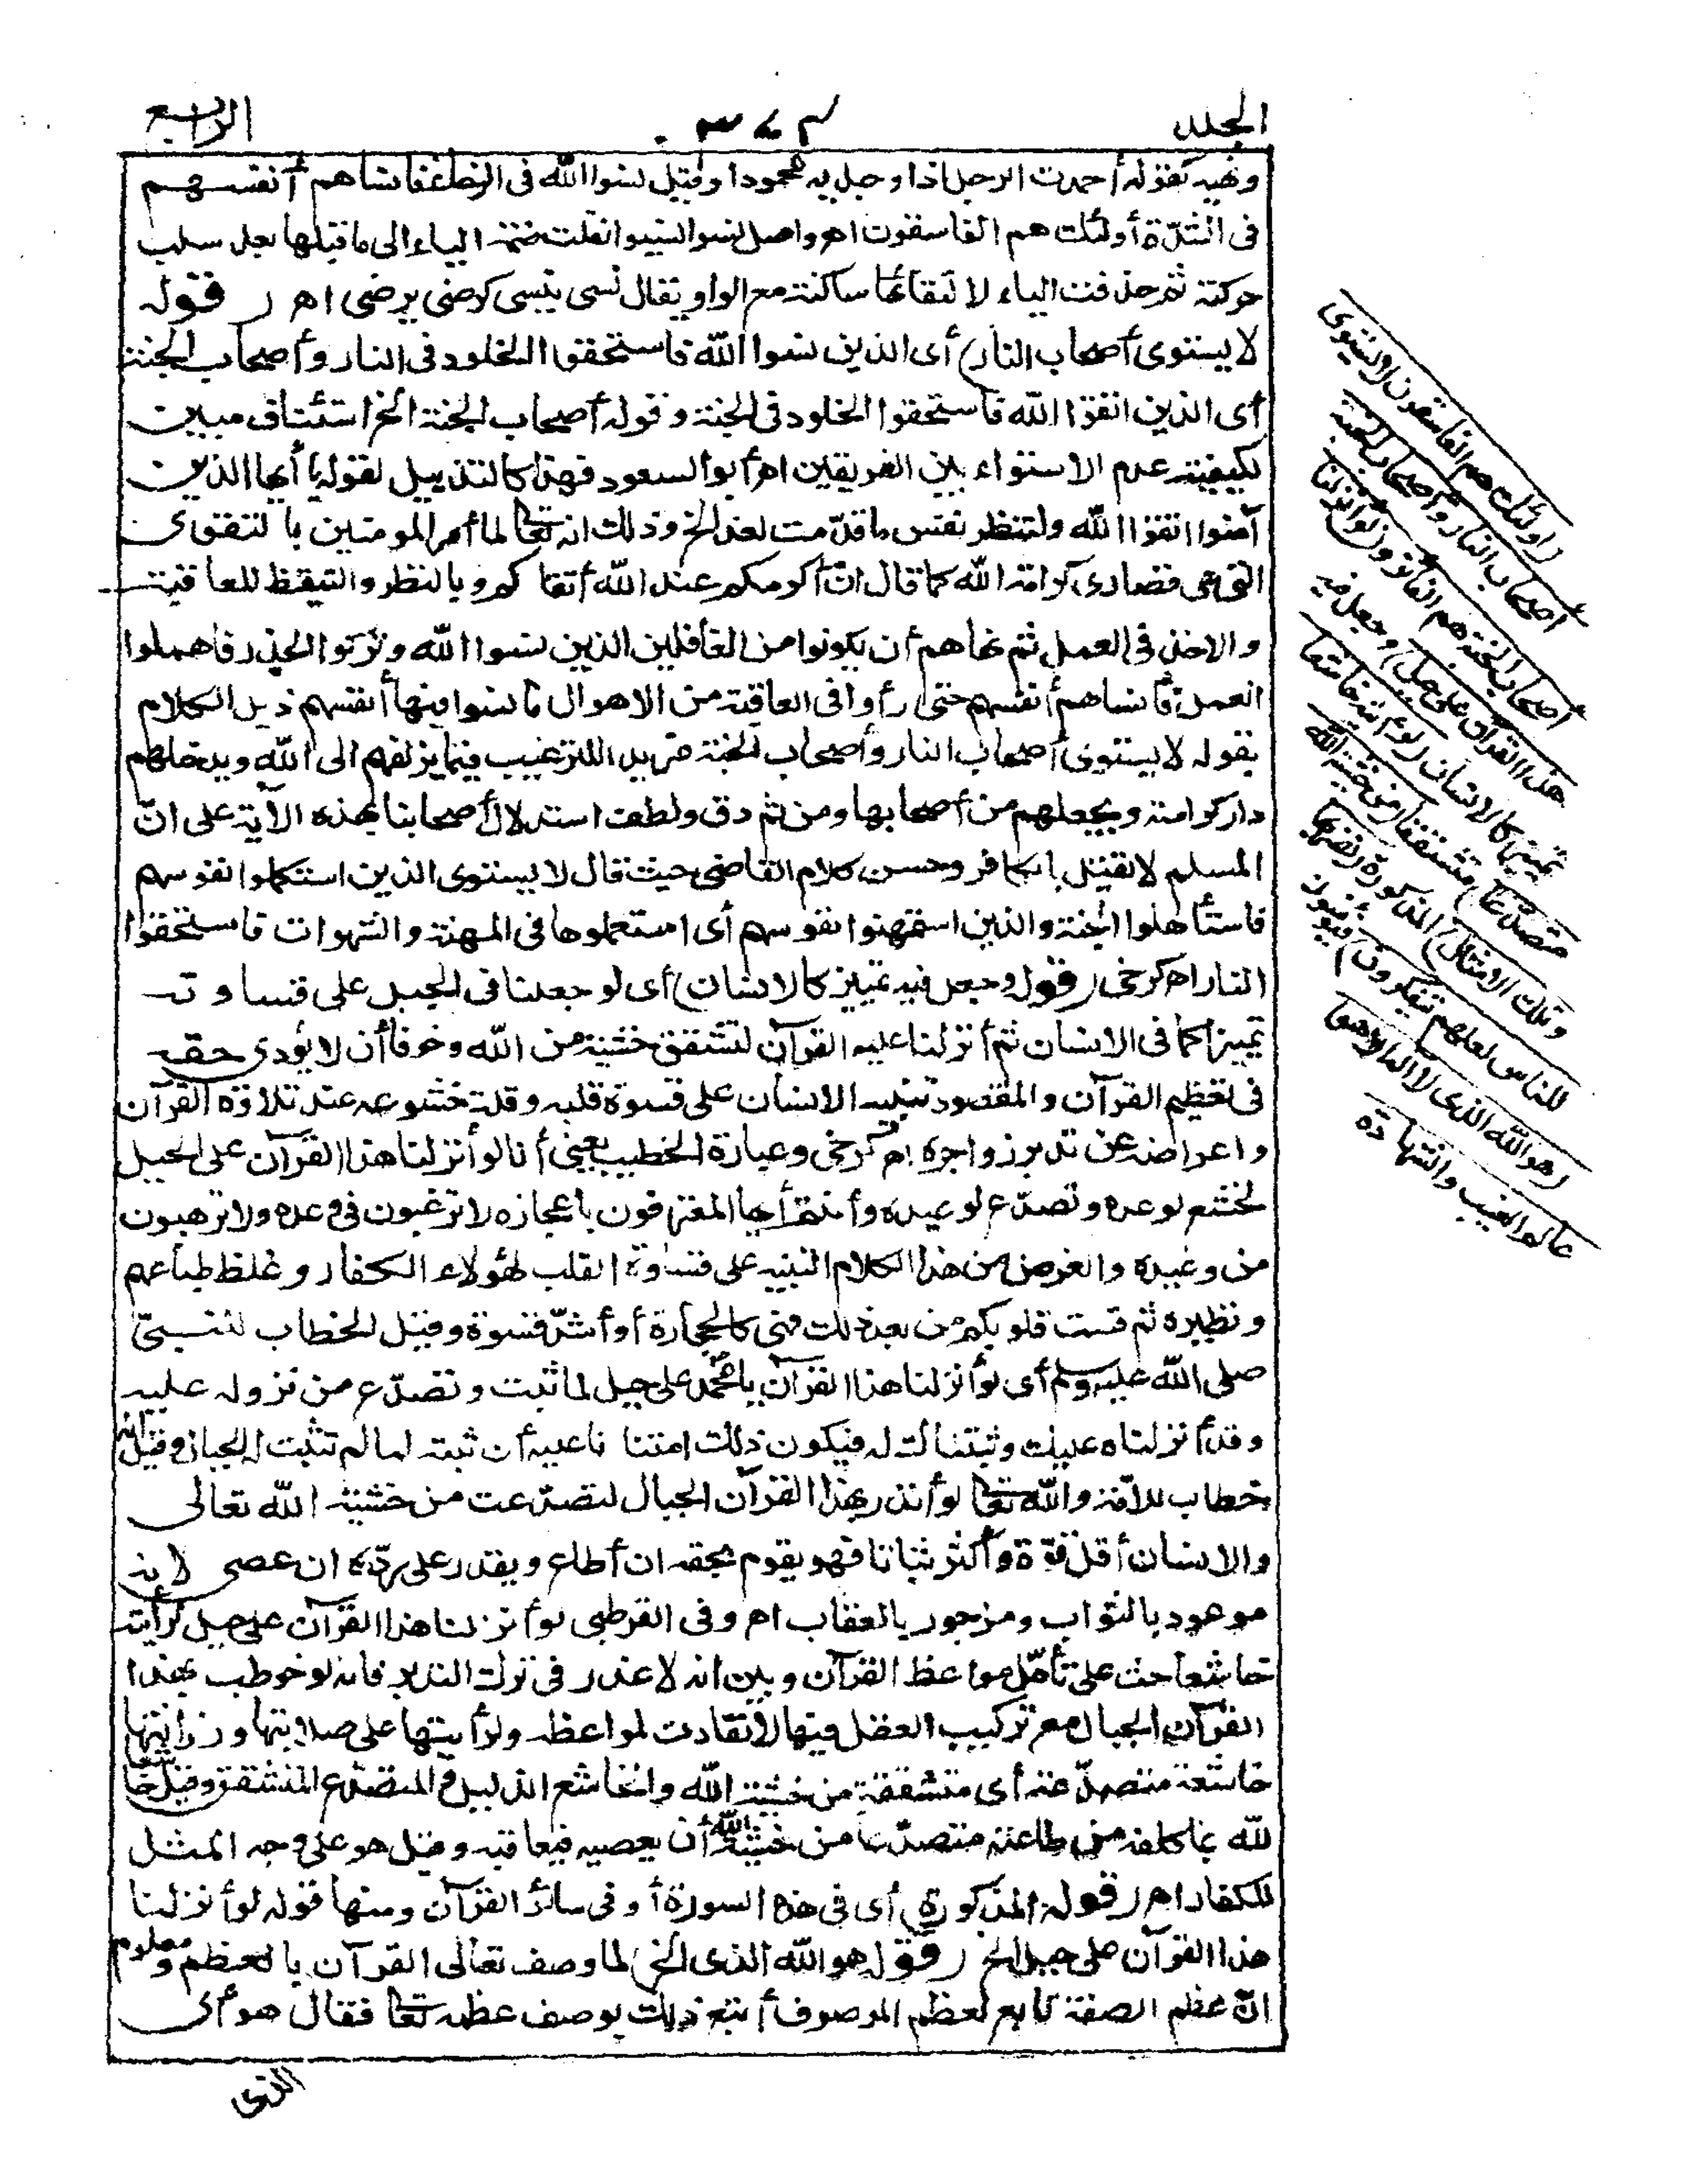 المجلد
الرابع
ونهيه كقوله أحمدت الرجل اذا وجد به محمودا وقيل نسوا الله فى الرخاء فأنساهم أنفسهم
فى الشدّة أولئك هم الفاسقون اه وأصل نسوا نسيوا نقلت ضمة الياء الى ما قبلها بعد سلب
حركته ثم حذفت الياء لالتقائها ساكنة مع الواو يقال نسى ينسى كرضى يرضى اه (قوله
لا يستوى أصحاب النار) أى الذين نسوا الله فاستحقوا الخلود فى النار وأصحاب الجنة
أى الذين اتقوا الله فاستحقوا الخلود فى الجنة وقوله أصحاب الجنة الخ استئناف مبين
لكيفية عدم الاستواء بين الفريقين اه أبو السعود فهذا كالتذييل لقوله يا أيها الذين
آمنوا اتقوا الله ولتنظر نفس ما قدّمت لغد الخ وذلك انه تعالى لما أمر المومنين بالتقوى
التى هى قصارى كرامة الله كما قال انّ أكرمكم عند الله أتقاكم وبالنظر والتيقظ للعاقبة
والاخذ فى العمل ثم نهاهم أن يكونوا من الغافلين الذين نسوا الله وتركوا الحذر فاهملوا
العمل فأنساهم أنفسهم حتى رأوا فى العاقبة من الاهوال ما نسوا فيها أنفسهم ذيل الكلام
بقوله لا يستوى أصحاب النار وأصحاب الجنة مزيدا للترغيب فيما يزلفهم الى الله ويدخلهم
دار كرامته ويجعلهم من أصحابها ومن ثم دق ولطف استدلال أصحابنا بهذه الآية على انّ
المسلم لا يقتل بالكافر وحسن كلام القاضى حيث قال لا يستوى الذين استكملوا نفوسهم
فاستأهلوا الجنة والذين استمهنوا نفوسهم أى استعملوها فى المهنة والشهوات فاستحقوا
النار اه كرخى (قوله وجعل فيه تمييز كالانسان) أى لو جعلنا فى الجبل على قساوته
تمييزا كما فى الانسان ثم أنزلنا عليه القرآن لتشقق خشية من الله وخوفا أن لا يؤدى حقه
فى تعظيم القرآن والمقصود تنبيه الانسان على قسوة قلبه وقلة خشوعه عند تلاوة القرآن
واعراضه عن تدبر زواجره اه كرخى وعبارة الخطيب يعنى أنا لو أنزلنا هذا القرآن على الجبل
لخشع لوعده وتصدّع لوعيده وأنتم أيها المعترفون باعجازه لا ترغبون فى وعده ولا ترهبون
من وعيده والغرض من هذا الكلام التنبيه على قساوة القلب لهؤلاء الكفار وغلظ طباعهم
ونظيره ثم قست قلوبكم من بعد ذلك فهى كالحجارة أو أشدّ قسوة وقيل الخطاب للنبىّ
صلى الله عليه وسلم أى لو أنزلنا هذا القرآن يا محمد على جبل لما ثبت وتصدّع من نزوله عليه
وقد أنزلناه عليك وثبتناك له فيكون ذلك امتنانا عليه أن ثبته لما لم تثبت له الجبال وقيل انه
خطاب للامّة والله تعالى لو أنذر بهذا القرآن الجبال لتصدّعت من خشية الله تعالى
والانسان أقل قوّة وأكثر ثباتا فهو يقوم بحقه ان أطاع ويقدر على ردّه ان عصى لانه
موعود بالثواب ومزجور بالعقاب اه وفى القرطبى لو أنزلنا هذا القرآن على جبل لرأيته
خاشعا حث على تأمّل مواعظ القرآن وبين انه لا عذر فى ترك التدبر فانه لو خوطب بهذا
القرآن الجبال مع تركيب العقل فيها لانقادت لمواعظه ولرأيتها على صلابتها ورزانتها
خاشعة متصدّعة أى متشققة من خشية الله والخاشع الذليل والمتصدّع المتشقق وقيل خاشعا
لله بما كلفه من طاعته متصدّعا من خشية الله أن يعصيه فيعاقبه وقيل هو على وجه المثل
للكفار اه (قوله المذكورة) أى فى هذه السورة أو فى سائر القرآن ومنها قوله لو أنزلنا
هذا القرآن على جبل الخ (قوله هو الله الذى الخ) لما وصف تعالى القرآن بالعظم ومعلوم
انّ عظم الصفة تابع لعظم الموصوف أتبع ذلك بوصف عظمه تعالى فقال هو أى
الذى
(أولئك هم الفاسقون لا يستوى
أصحاب النار وأصحاب الجنة
أصحاب الجنة هم الفائزون لو أنزلنا
هذا القرآن على جبل) وجعل فيه
تمييز كالانسان (لرأيته خاشعا
متصدّعا) متشققا (من خشية الله
وتلك الامثال) المذكورة (نضربها
للناس لعلهم يتفكرون) فيؤمنون
(هو الله الذى لا اله الا هو
عالم الغيب والشهادة